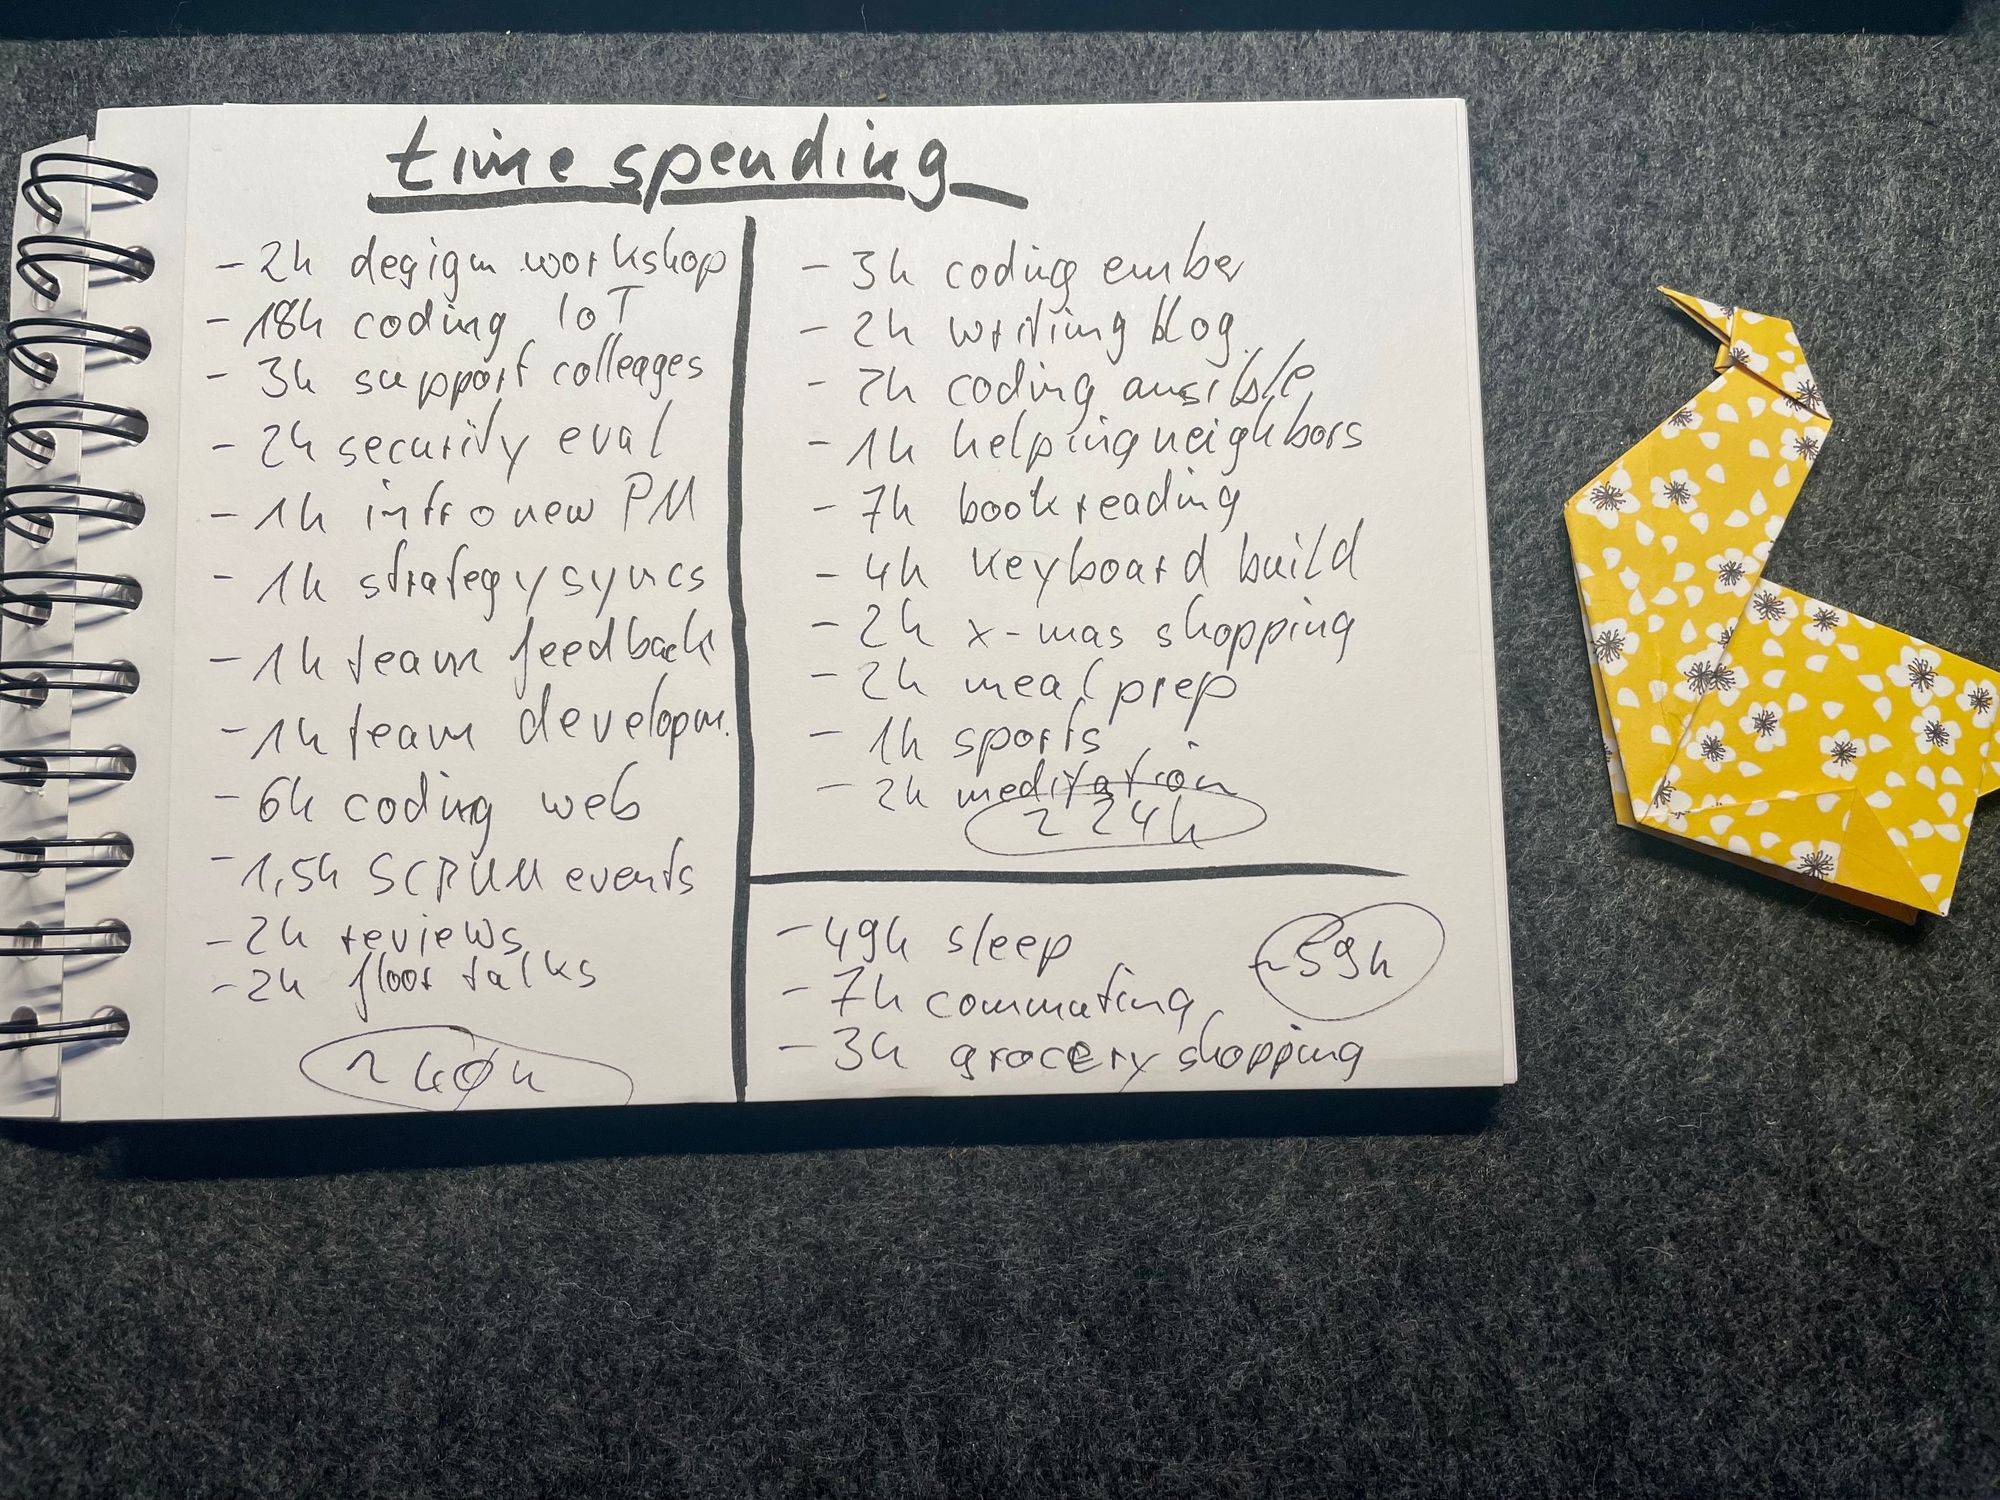 time spending
- 2h degign workshop
- 18h coding IoT
- 3h support colleages
- 2h security eval
- 1h intro new PM
- 1h strategy syncs
- 1h team feedback
- 1h team developm.
- 6h coding web
- 1,5h SCRUM events
- 2h reviews
- 2h floor talks
~ 40h
- 3h coding ember
- 2h writing blog
- 2h coding ansible
- 1h helping neighbors
- 7h book reading
- 4h keyboard build
- 2h x-mas shopping
- 2h meal prep
- 1h sports
- 2h meditation
~ 24h
- 49h sleep
- 7h commuting
- 3h grocery shopping
~ 59h